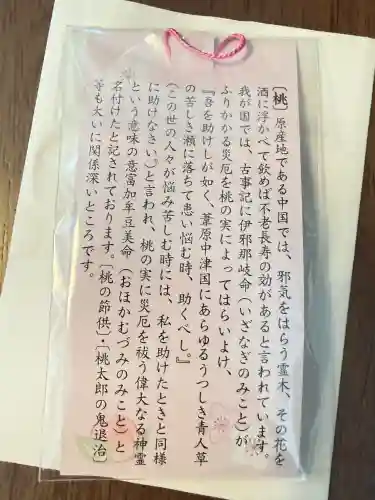 〔桃〕原産地である中国では、邪気をはらう霊木、その花を
酒に浮かべて飲めば不老長寿の効があると言われています。
我が国では、古事記に伊邪那岐命(いざなぎのみこと)が
ふりかかる災厄を桃の実によってはらいよけ、
『吾を助けしが如く、葦原中津国にあらゆるうつしき青人草
の苦しき瀬に落ちて患い悩む時、助くべし。』
(この世の人々が悩み苦しむ時には、私を助けたときと同様
に助けなさい。)と言われ、桃の実に災厄を祓う偉大なる神霊
という意味の意富加牟豆美命(おほかむづみのみこと)と
名付けたと記されております。〔桃の節供〕・〔桃太郎の鬼退治〕
等も大いに関係深いところです。